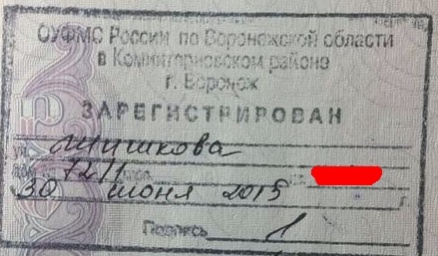 ОУФМС России по Воронежской области
в Коминтерновском районе
г. Воронеж
ЗАРЕГИСТРИРОВАН
ул. Шишкова
дом 72/1
30 июня 2015 г.
Подпись